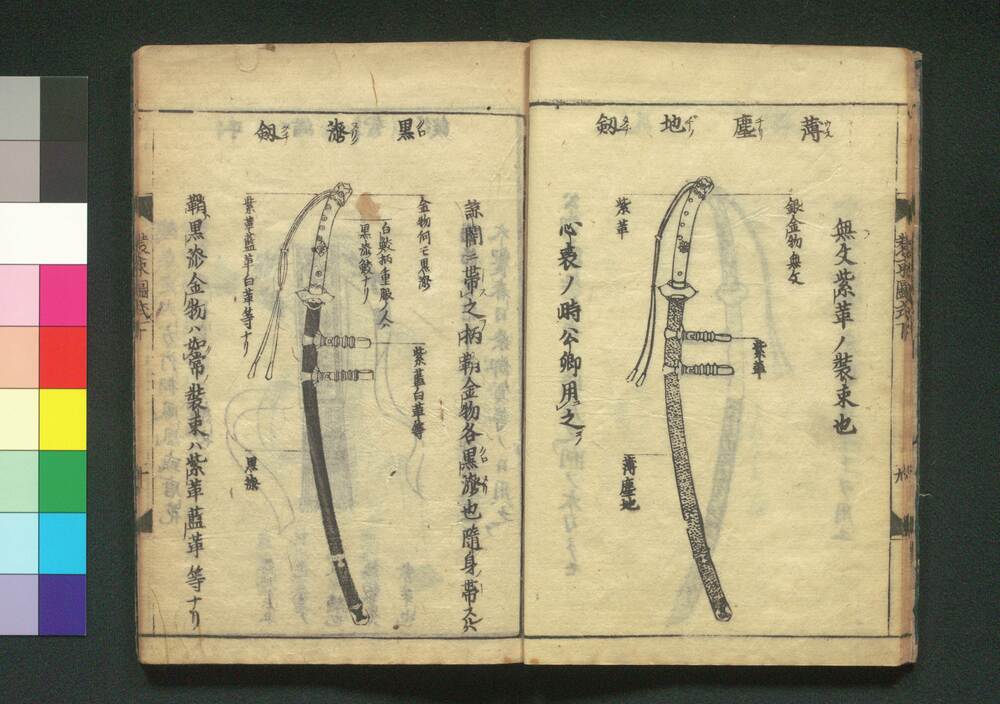 薄塵地剱
無文紫革ノ装束也
銀金物無文
紫革
薄塵地
紫革
心喪ノ時公卿用之
黒漆剱
諒闇ニ帯之柄鞘金物各黒漆也隨身帯スルハ
金物何モ黒漆
白鮫柄重服ノ人ハ
黒漆鮫ナリ
紫藍白革等
紫革藍革白革等ナリ
黒漆
鞘黒漆金物ハ如常装束ハ紫革藍革等ナリ
装束圖式下
装束圖式下